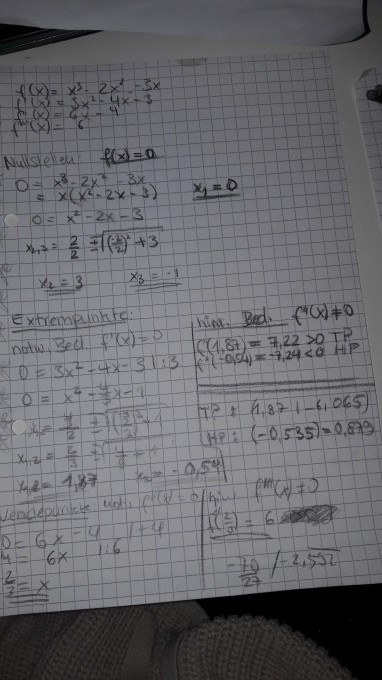 f(x) = x³ - 2x² - 3x
f'(x) = 3x² - 4x - 3
f''(x) = 6x - 4
f'''(x) = 6
Nullstellen: f(x) = 0
0 = x³ - 2x² - 3x
= x(x² - 2x - 3) x₁ = 0
0 = x² - 2x - 3
x₂,₃ = 2/2 ± √((-2/2)² + 3)
x₂ = 3 x₃ = -1
Extrempunkte:
notw. Bed. f'(x) = 0
0 = 3x² - 4x - 3 | :3
0 = x² - 4/3 x - 1
x₁,₂ = 2/3 ±
x₁ = 1,87 x₂ = -0,54
hinr. Bed. f''(x) ≠ 0
f''(1,87) = 7,22 > 0 TP
f''(-0,54) = -7,24 < 0 HP
TP: (1,87 | -6,065)
HP: (-0,535) = 0,879
Wendepunkte: notw. f''(x) = 0
0 = 6x - 4 | +4
4 = 6x | :6
= x
hinr. f'''(x) ≠ 0
= 6
-70/27 / -2,552